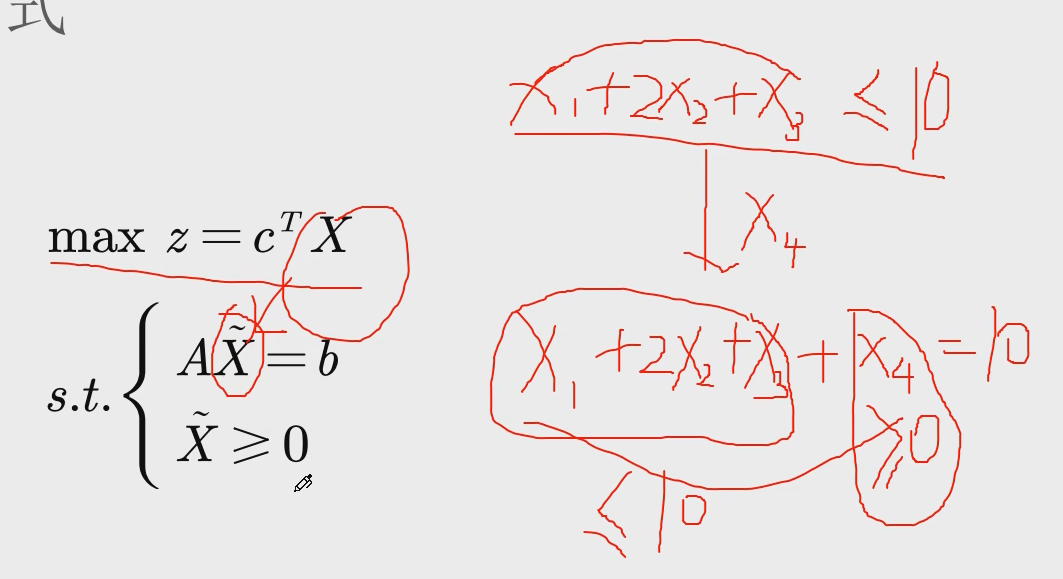 式
max z = c^T X
s.t. { A X̃ = b
X̃ ⩾ 0
x₁ + 2x₂ + x₃ ≤ 10
x₄
x₁ + 2x₂ + x₃ + x₄ = 10
⩾ 0
≤ 10